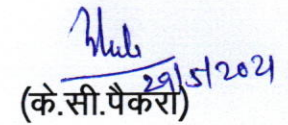 29/5/2021
(के.सी.पैकरा)